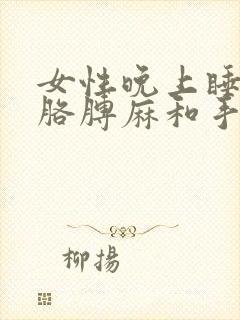 女性晚上睡
胳膊麻和手
柳揚